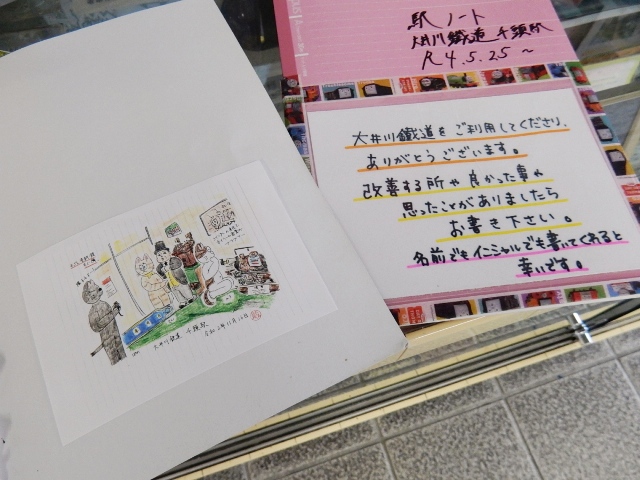 駅ノート
大井川鐵道 千頭駅
R4.5.25~
大井川鐵道をご利用してくださり、
ありがとうございます。
改善する所や良かった事や
思ったことがありましたら
お書き下さい。
名前でもイニシャルでも書いてくれると
幸いです。
大井川鐵道 千頭駅